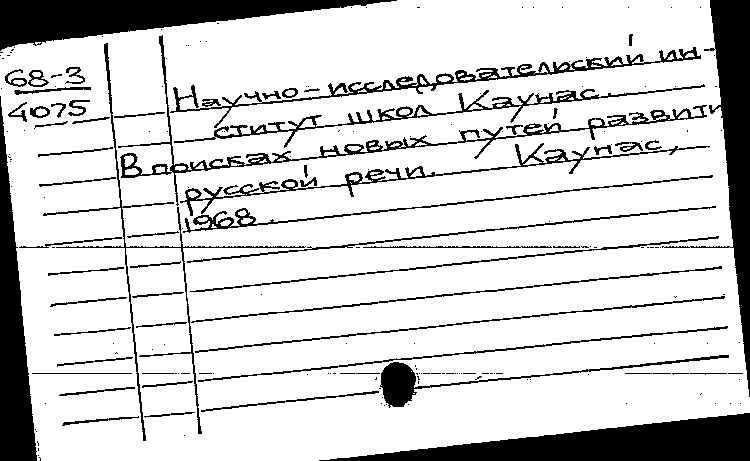 68-3
4075
Научно-исследовательский ин-
ститут школ Каунас.
В поисках новых путей развити
русской речи. Каунас,
1968.